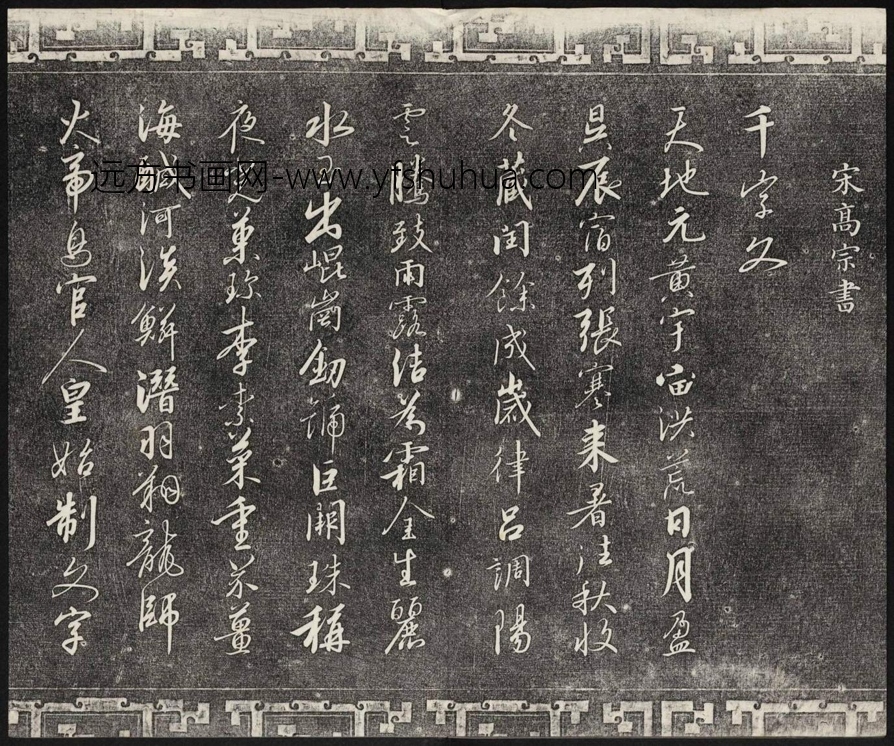 宋高宗書
千字文
天地元黃宇宙洪荒日月盈
昃辰宿列張寒来暑往秋收
冬藏閏餘成歲律呂調陽
雲騰致雨露結為霜金生麗
水玉出崐崗劒號巨闕珠稱
夜光菓珍李柰菜重芥薑
海鹹河淡鱗潛羽翔龍師
火帝鳥官人皇始制文字
远方书画网-www.yfshuhua.com